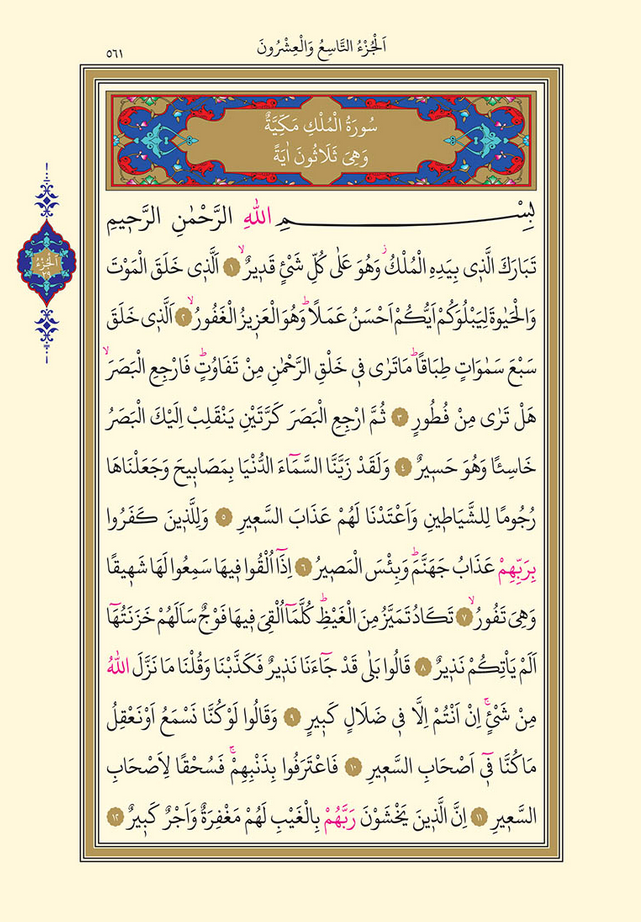 اَلْجُزْءُ التَّاسِعُ وَالْعِشْرُونَ
٥٦١
سُورَةُ الْمُلْكِ مَكِّيَّةٌ
وَهِيَ ثَلَاثُونَ اٰيَةً
بِسْمِ اللّٰهِ الرَّحْمٰنِ الرَّحٖيمِ
تَبَارَكَ الَّذٖي بِيَدِهِ الْمُلْكُۘ وَهُوَ عَلٰى كُلِّ شَيْءٍ قَدٖيرٌۙ ﴿١﴾ اَلَّذٖي خَلَقَ الْمَوْتَ
وَالْحَيٰوةَ لِيَبْلُوَكُمْ اَيُّكُمْ اَحْسَنُ عَمَلًاؕ وَهُوَ الْعَزٖيزُ الْغَفُورُۙ ﴿٢﴾ اَلَّذٖي خَلَقَ
سَبْعَ سَمٰوَاتٍ طِبَاقًاؕ مَا تَرٰى فٖي خَلْقِ الرَّحْمٰنِ مِنْ تَفَاوُتٍؕ فَارْجِعِ الْبَصَرَۙ
هَلْ تَرٰى مِنْ فُطُورٍ ﴿٣﴾ ثُمَّ ارْجِعِ الْبَصَرَ كَرَّتَيْنِ يَنْقَلِبْ اِلَيْكَ الْبَصَرُ
خَاسِئًا وَهُوَ حَسٖيرٌ ﴿٤﴾ وَلَقَدْ زَيَّنَّا السَّمَٓاءَ الدُّنْيَا بِمَصَابٖيحَ وَجَعَلْنَاهَا
رُجُومًا لِلشَّيَاطٖينِ وَاَعْتَدْنَا لَهُمْ عَذَابَ السَّعٖيرِ ﴿٥﴾ وَلِلَّذٖينَ كَفَرُوا
بِرَبِّهِمْ عَذَابُ جَهَنَّمَؕ وَبِئْسَ الْمَصٖيرُ ﴿٦﴾ اِذَٓا اُلْقُوا فٖيهَا سَمِعُوا لَهَا شَهٖيقًا
وَهِيَ تَفُورُۙ ﴿٧﴾ تَكَادُ تَمَيَّزُ مِنَ الْغَيْظِؕ كُلَّمَٓا اُلْقِيَ فٖيهَا فَوْجٌ سَاَلَهُمْ خَزَنَتُهَٓا
اَلَمْ يَاْتِكُمْ نَذٖيرٌ ﴿٨﴾ قَالُوا بَلٰى قَدْ جَٓاءَنَا نَذٖيرٌ فَكَذَّبْنَا وَقُلْنَا مَا نَزَّلَ اللّٰهُ
مِنْ شَيْءٍۚ اِنْ اَنْتُمْ اِلَّا فٖي ضَلَالٍ كَبٖيرٍ ﴿٩﴾ وَقَالُوا لَوْ كُنَّا نَسْمَعُ اَوْ نَعْقِلُ
مَا كُنَّا فٖٓي اَصْحَابِ السَّعٖيرِ ﴿١٠﴾ فَاعْتَرَفُوا بِذَنْبِهِمْۚ فَسُحْقًا لِاَصْحَابِ
السَّعٖيرِ ﴿١١﴾ اِنَّ الَّذٖينَ يَخْشَوْنَ رَبَّهُمْ بِالْغَيْبِ لَهُمْ مَغْفِرَةٌ وَاَجْرٌ كَبٖيرٌ ﴿١٢﴾